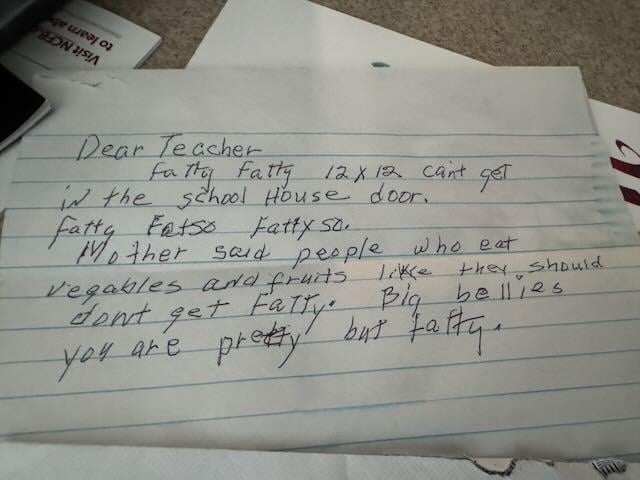 Visit NCFB
to learn ab
Dear Teacher
Fatty Fatty 12 x 12 can't get
in the school House door.
Fatty Fatso Fattyso.
Mother said people who eat
vegables and fruits like they should
dont get FaTTy. Big bellies
you are pretty but fatty.